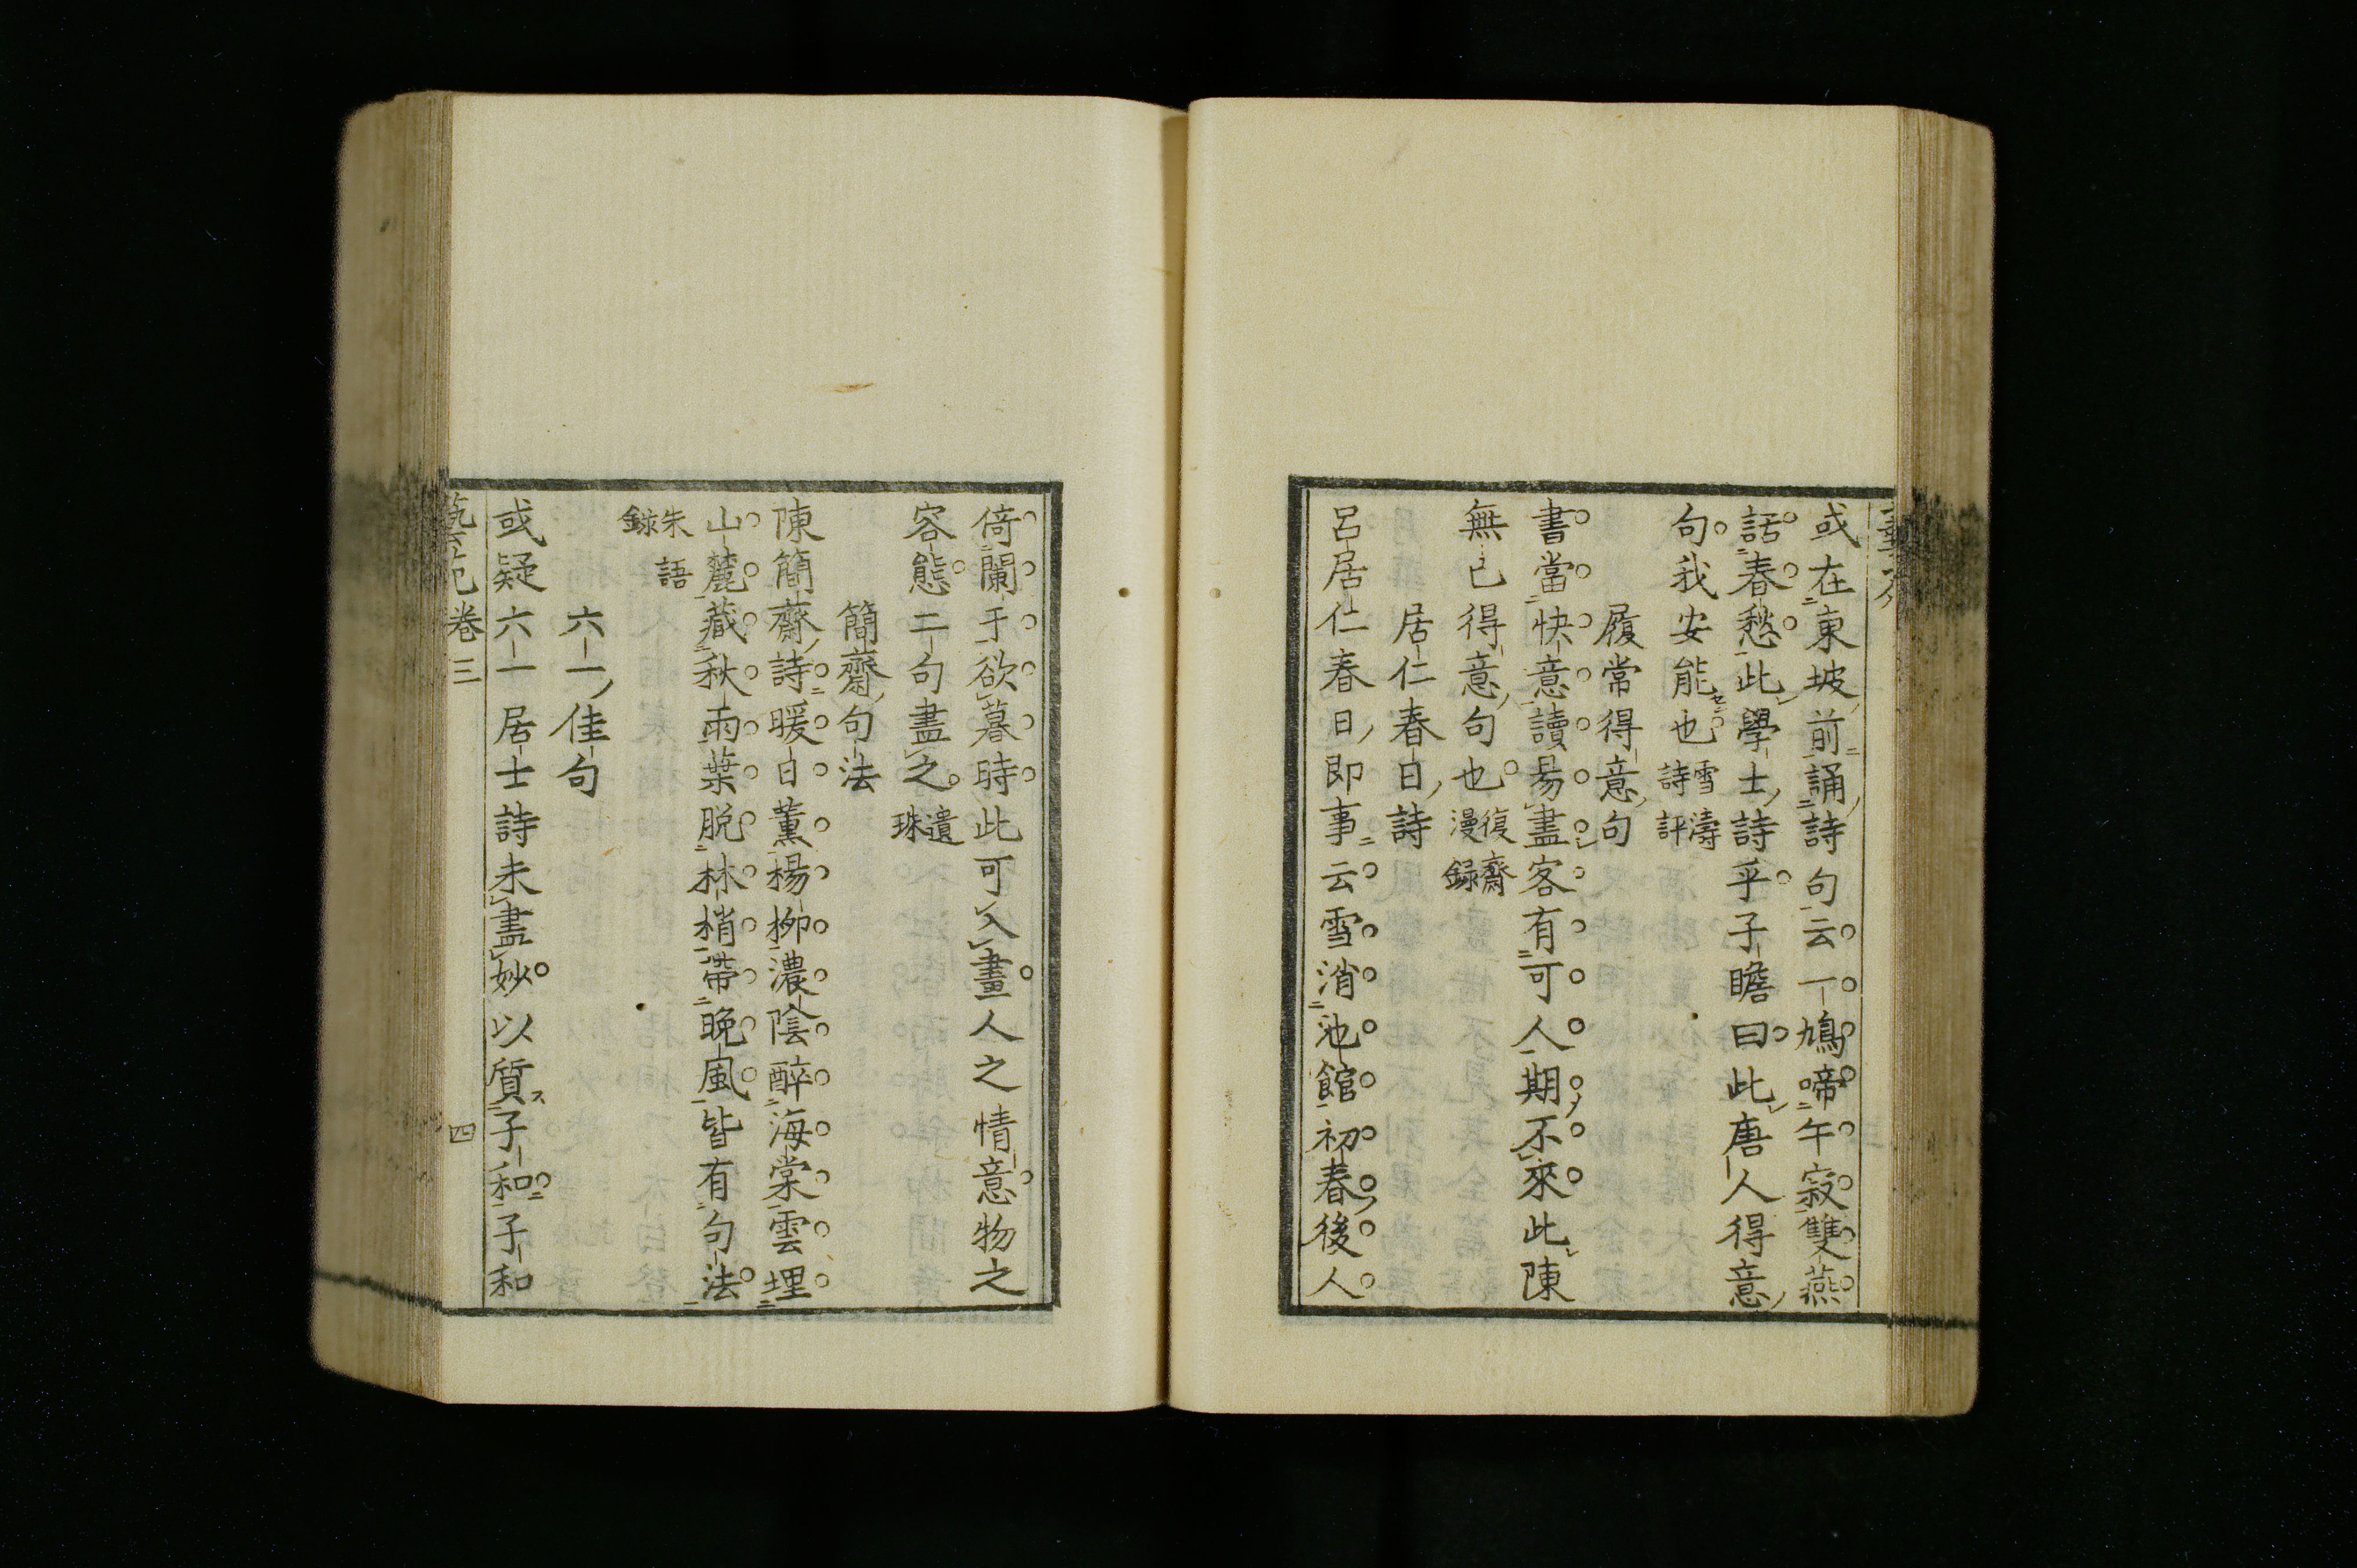 或在東坡前誦詩句云一鳩啼午寂雙燕
話春愁此學士詩乎子瞻曰此唐人得意
句我安能也雪濤詩評
履常得意句
書當快意讀易盡客有可人期不來此陳
無已得意句也復齋漫録
居仁春日詩
呂居仁春日即事云雪消池館初春後人
倚闌干欲暮時此可入畫人之情意物之
容態二句盡之遺珠
簡齋句法
陳簡齋詩暖日薰楊柳濃陰醉海棠雲埋
山麓藏秋雨葉脱林梢帶晚風皆有句法
朱語録
六一佳句
或疑六一居士詩未盡妙以質子和子和
卷三 四